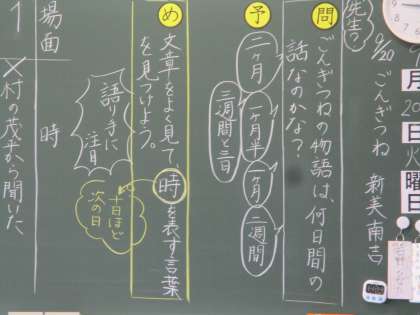 月
日
曜日
9/20 ごんぎつね 新美南吉
先生?
問
ごんぎつねの物語は、何日間の
話なのかな?
予
二ヶ月
一ヶ月半
一ヶ月
二週間
三週間と三日
め
文章をよく見て、時を表す言葉
を見つけよう。
語り手に
注目
十日ほど
次の日
場面 時
1 村の茂平から聞いた